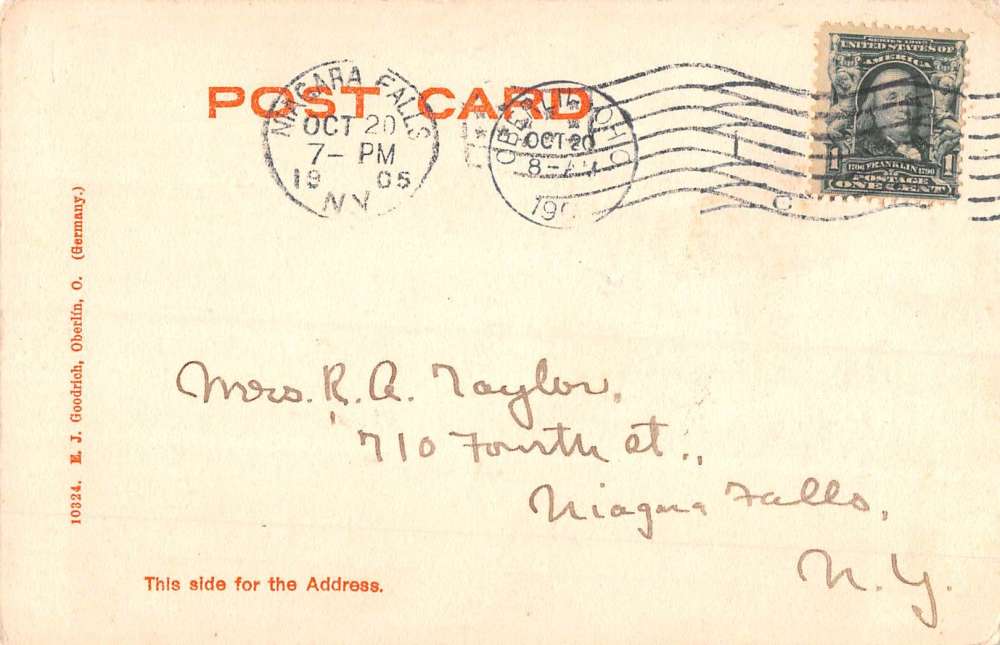 POST CARD
NIAGARA FALLS
OCT 20
7- PM
19 05
N.Y.
OHIO
OCT 20
8-AM
190
1
C
SERIES 1902
UNITED STATES OF
AMERICA
1706 FRANKLIN 1790
1 1
POSTAGE
ONE CENT
10324. E. J. Goodrich, Oberlin, O. (Germany.)
Mrs. R. A. Taylor,
710 Fourth st.,
Niagara Falls,
N. Y.
This side for the Address.